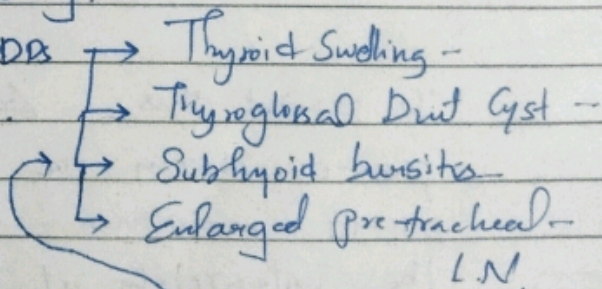 DDs → Thyroid Swelling -
→ Thyroglossal Duct Cyst -
→ Subhyoid bursitis
→ Enlarged Pre-tracheal -
L.N.